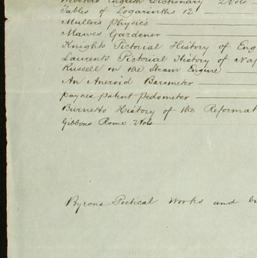 English Dictionary 2 Vols
Tables of Logarithms 12
Mullers Physics
Mawes Gardener
Knights Pictorial History of Eng
Laurents Pictorial History of Nap
Russell on the Steam Engine
An Aneroid Barometer
paynes patent Pedometer
Burnetts History of the Reformat
Gibbons Rome Vols
Byrons Poetical Works and